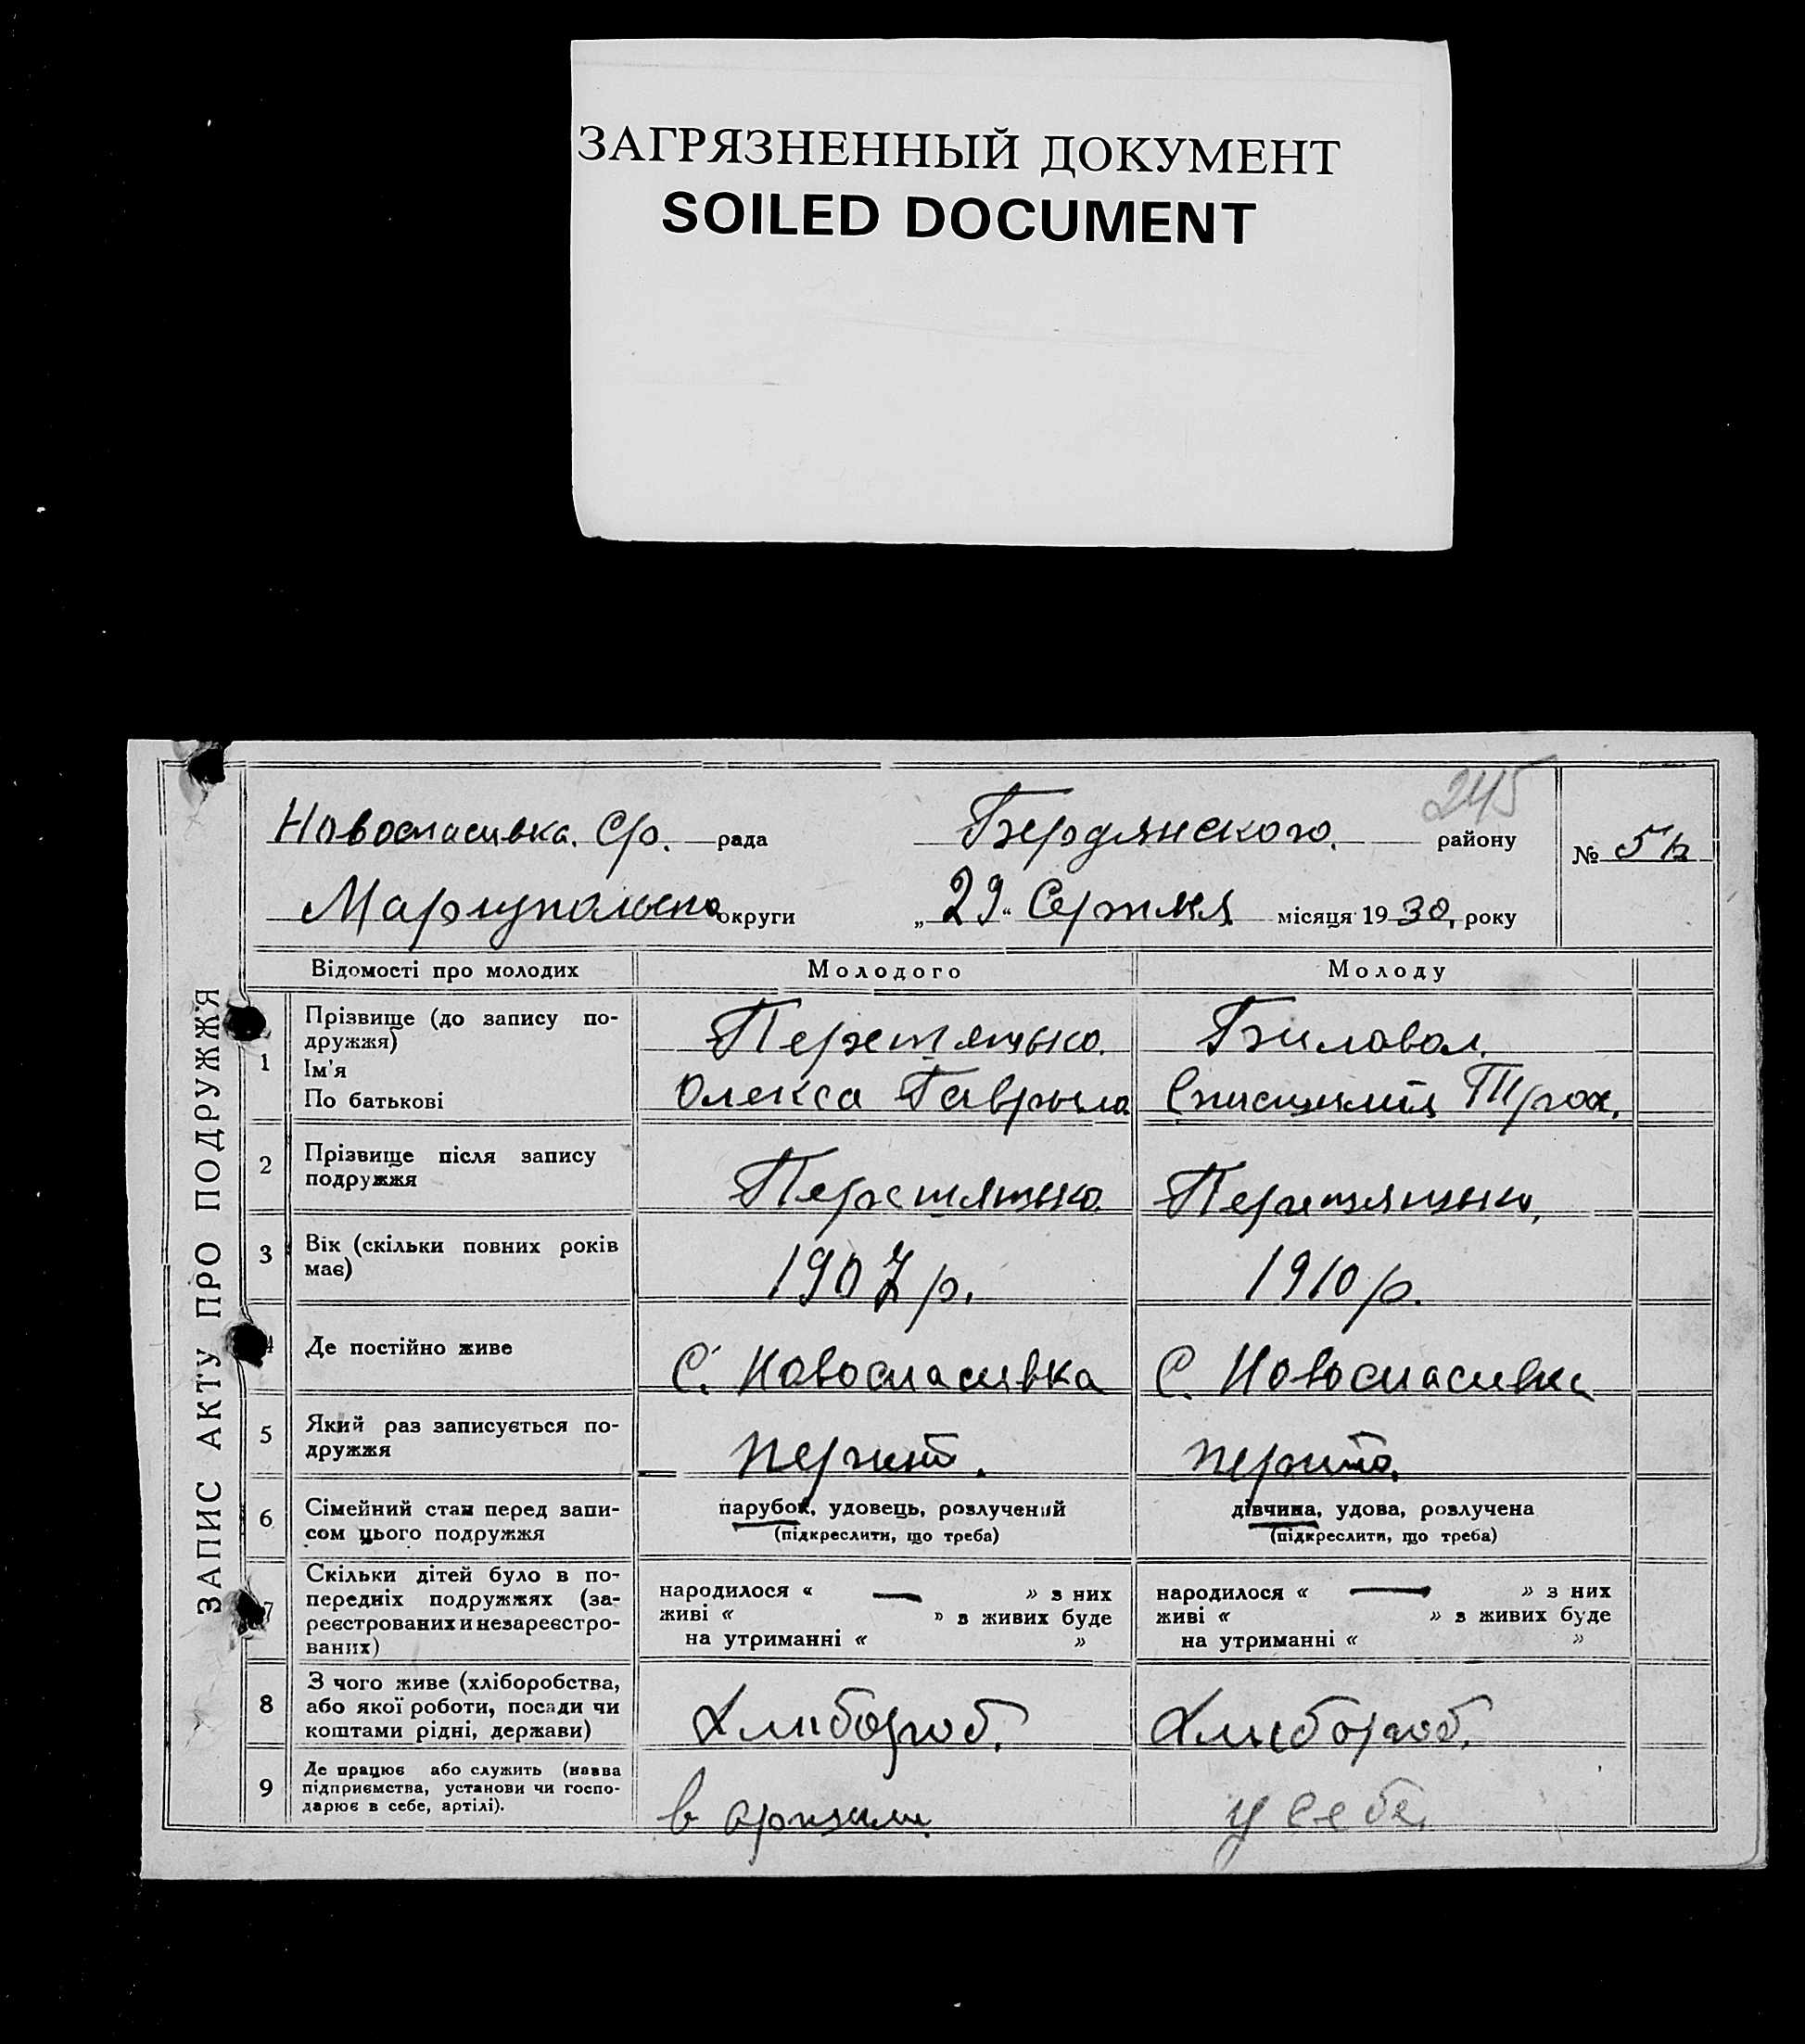 ЗАГРЯЗНЕННЫЙ ДОКУМЕНТ
SOILED DOCUMENT
245
Новоспасивка. С/р. рада Бердянского. району
№ 52
Мариупольско округи „29“ Серпня місяця 1930, року
ЗАПИС АКТУ ПРО ПОДРУЖЖЯ
Відомості про молодих Молодого Молоду
1 Прізвище (до запису по-
дружжя) Перетятько. Биловол.
Ім'я
По батькові Олекса Гаврыла Трох.
2 Прізвище після запису
подружжя Перетятько Перетятько,
3 Вік (скільки повних років
має) 1907 р. 1910 р.
4 Де постійно живе С. Новоспасивка С. Новоспасивка
5 Який раз записується по-
дружжя
6 Сімейний стан перед запи-
сом цього подружжя
парубок, удовець, розлучений
(підкреслити, що треба)
дівчина, удова, розлучена
(підкреслити, що треба)
7 Скільки дітей було в по-
передніх подружжях (за-
реєстрованих и незареєстро-
ваних)
народилося « — » з них
живі « » в живих буде
на утриманні « »
народилося « — » з них
живі « » в живих буде
на утриманні « »
8 З чого живе (хліборобства,
або якої роботи, посади чи
коштами рідні, держави) Хлибороб. Хлибороб.
9 Де працює або служить (назва
підприємства, установи чи госпо-
дарює в себе, артілі). в артили. у себе.